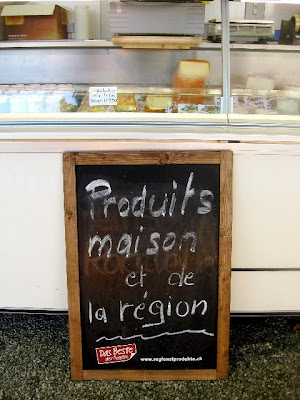 Produits
maison
et de
la région
Das Beste
der Region
www.regionalprodukte.ch